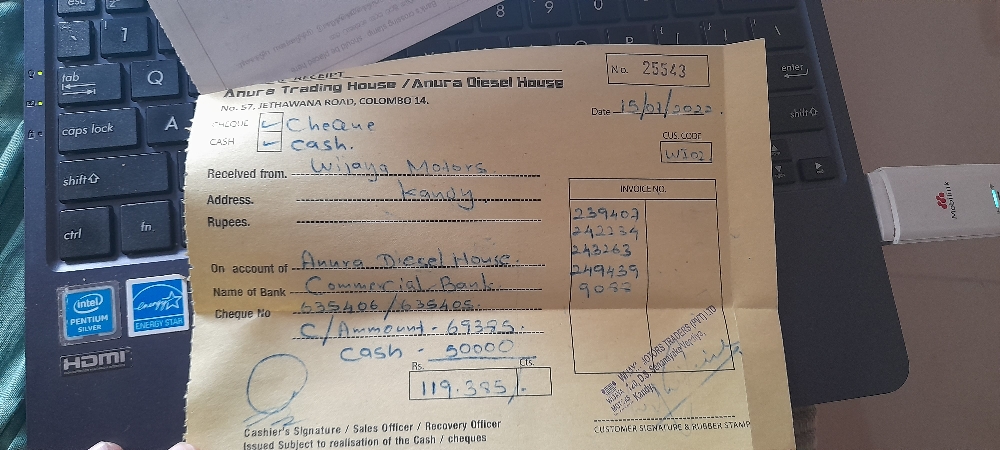 RECEIPT
Anura Trading House / Anura Diesel House
No. 57, JETHAWANA ROAD, COLOMBO 14.
No. 25543
Date 15/07/2022.
CHEQUE ✓ Cheque
CASH ✓ cash.
CUS. CODE
WI02
Received from. Wijaya Motors.
Address. Kandy.
Rupees.
INVOICE NO.
239407
242234
243263
249439
On account of Anura Diesel House.
Name of Bank Commercial Bank
Cheque No 635406/635405.
C/Ammount - 69385.
Cash - 50000
Rs. Cts.
119.385/-
Kandy.
Cashier's Signature / Sales Officer / Recovery Officer
Issued Subject to realisation of the Cash / cheques
CUSTOMER SIGNATURE & RUBBER STAMP
esc
1
8 9 0
tab Q
caps lock A
shift
ctrl fn
enter
shift
intel
PENTIUM
SILVER
energy
ENERGY STAR
HDMI
Mobitel